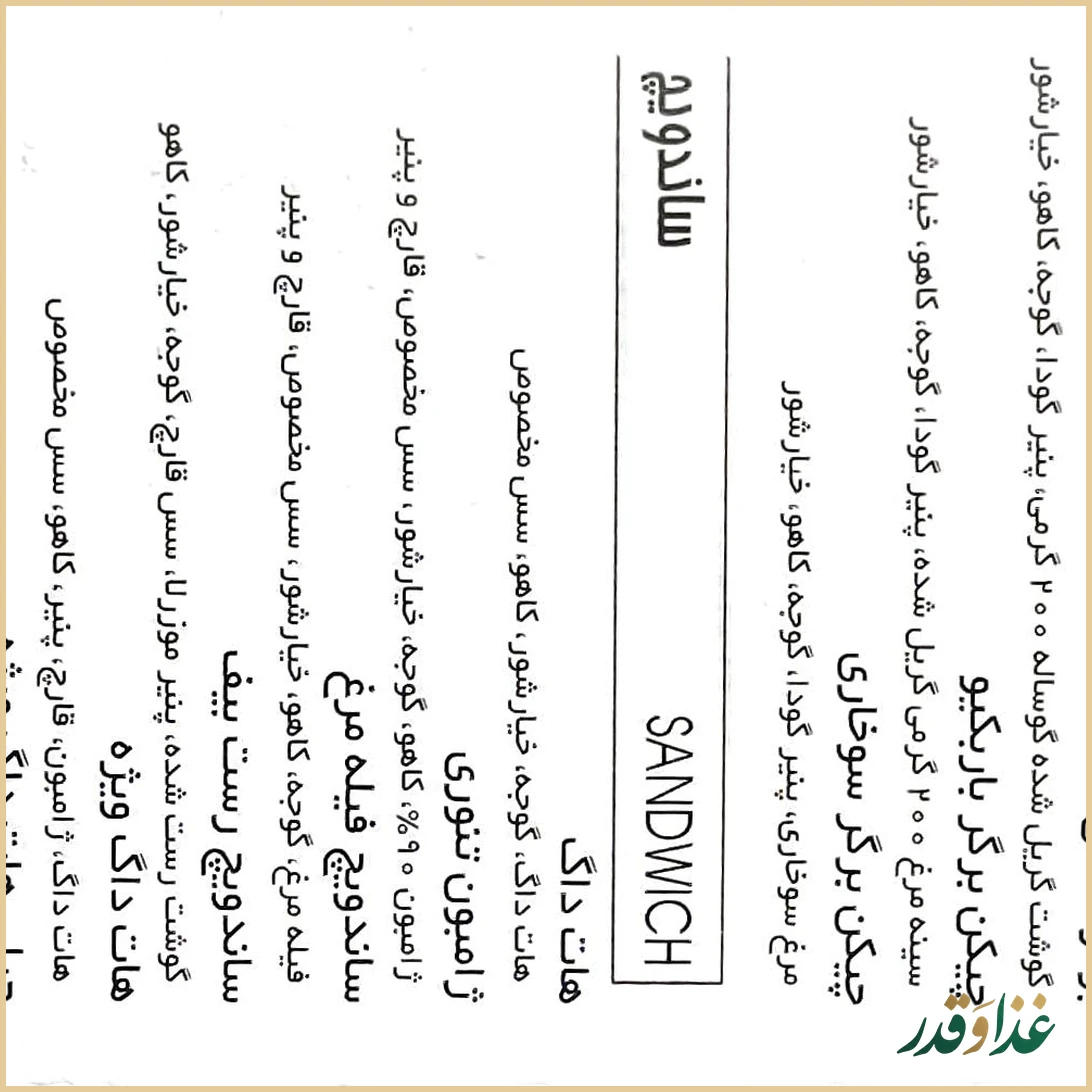 گوشت گریل شده گوساله ۲۰۰ گرمی، پنیر گودا، گوجه، کاهو، خیارشور
چیکن برگر باربکیو
سینه مرغ ۲۰۰ گرمی گریل شده، پنیر گودا، گوجه، کاهو، خیارشور
چیکن برگر سوخاری
مرغ سوخاری، پنیر گودا، گوجه، کاهو، خیارشور
ساندویچ SANDWICH
هات داگ
هات داگ، گوجه، خیارشور، کاهو، سس مخصوص
ژامبون تنوری
ژامبون ۹۰%، کاهو، گوجه، خیارشور، سس مخصوص، قارچ و پنیر
ساندویچ فیله مرغ
فیله مرغ، گوجه، کاهو، خیارشور، سس مخصوص، قارچ و پنیر
ساندویچ رست بیف
گوشت رست شده، پنیر موزرلا، سس قارچ، گوجه، خیارشور، کاهو
هات داگ ویژه
هات داگ، ژامبون، قارچ، پنیر، کاهو، سس مخصوص
غذا و قدر